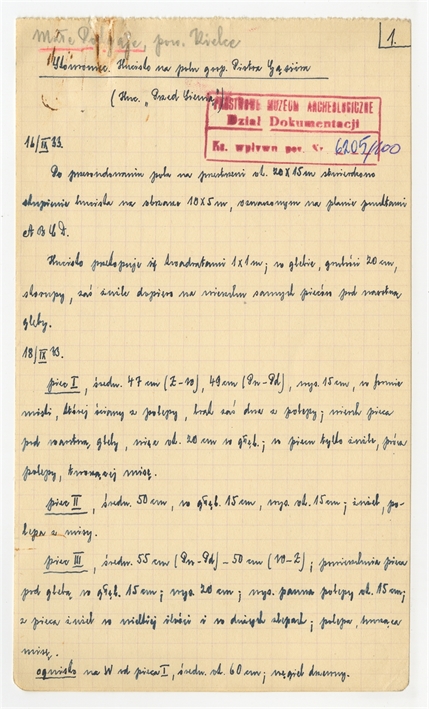 1.
pow. Kielce
Słowronec. Hucisko na polu gosp. Piotra
(Huc. „Przed
PAŃSTWOWE MUZEUM ARCHEOLOGICZNE
Dział Dokumentacji
Ks. wpływu poz. Nr 6205/100
16/IX 83.
Po przesondowaniu pola na przestrzeni ok. 20x15 m stwierdzono
skupienie huciska na obszarze 10x5 m, oznaczonym na planie punktami
A B C D.
Hucisko przekopuje się kwadratami 1x1 m; w glebie, grubości 20 cm,
skorupy, zaś żużle dopiero na wierzchu samych pieców pod warstwą
gleby.
18/IX 83.
piec I, średn. 47 cm (Z-W), 49 cm (Pn-Pd), wys. 15 cm, w formie
miski, której ściany z polepy, brak zaś dna z polepy; wierzch pieca
pod warstwą gleby, więc ok. 20 cm w głęb.; w piecu tylko żużle, prócz
polepy, tworzącej misę.
piec II, średn. 50 cm, w głęb. 15 cm, wys. ok. 15 cm; żużel, po-
lepa z misy.
piec III, średn. 55 cm (Pn-Pd) - 50 cm (W-Z); powierzchnia pieca
pod glebą w głęb. 15 cm; wys. 20 cm; wys. polepy ok. 15 cm;
z pieca żużel w wielkiej ilości i w dużych klepach; polepa, tworząca
misę.
ognisko na W od pieca I, średn. ok. 60 cm; węgiel drzewny.